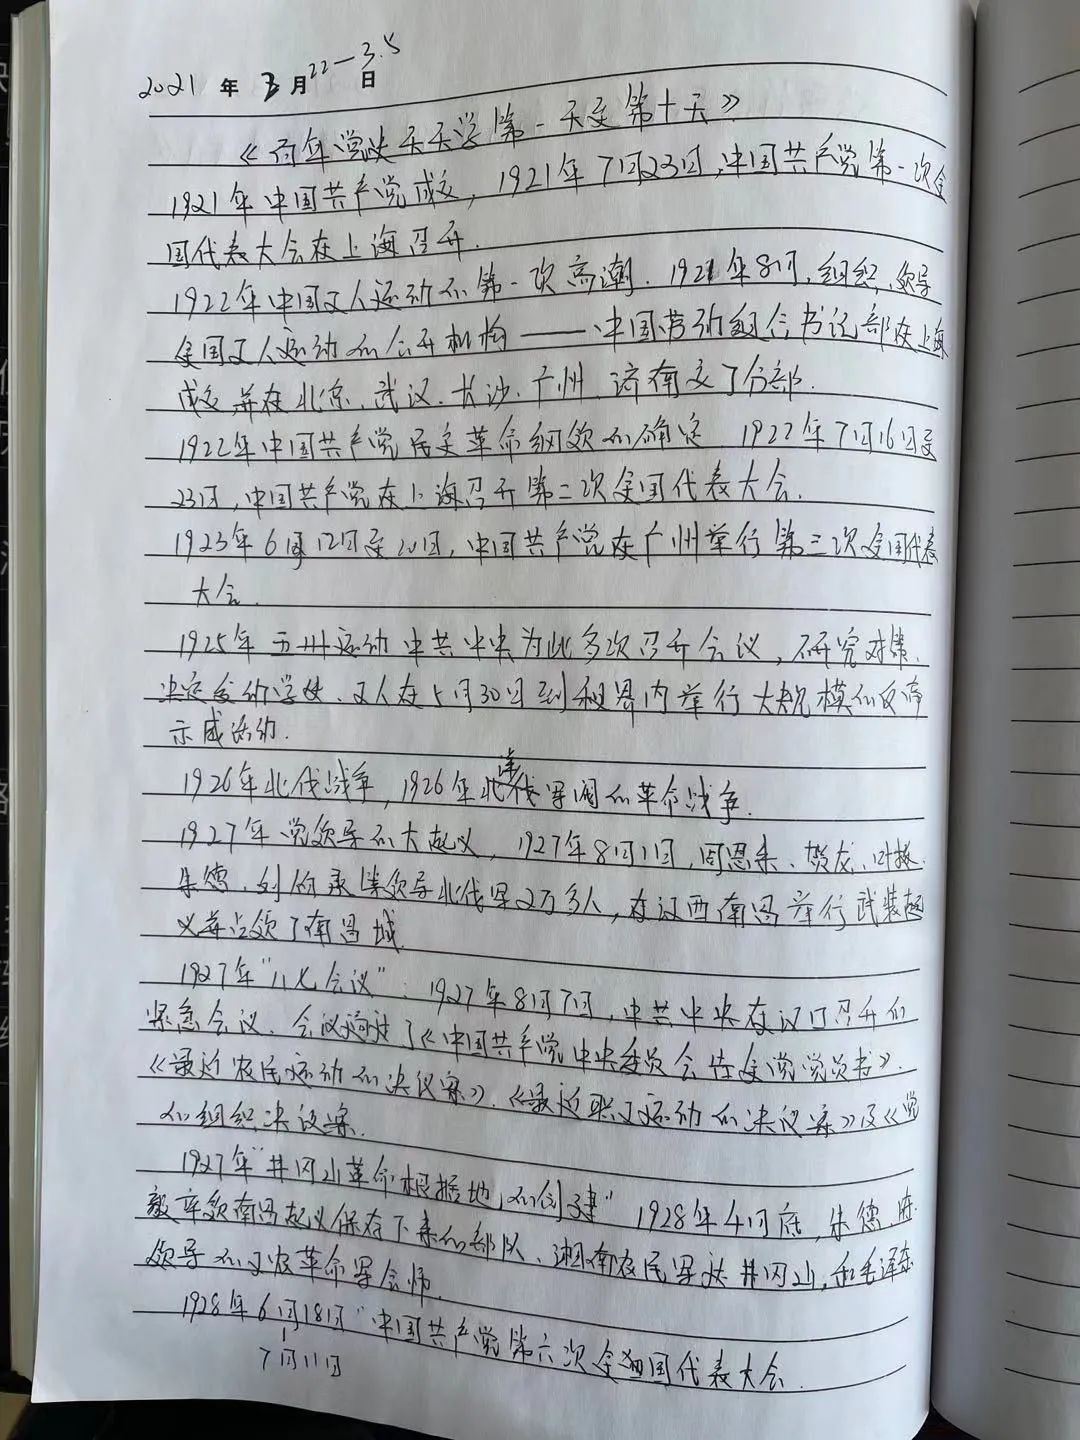 2021 年 3 月 22—3.5 日
《百年党史天天学第一天至第十天》
1921年中国共产党成立，1921年7月23日，中国共产党第一次全
国代表大会在上海召开.
1922年中国工人运动的第一次高潮. 1921年8月, 组织、领导
全国工人运动的公开机构——中国劳动组合书记部在上海
成立并在北京、武汉、长沙、广州、济南立了分部.
1922年中国共产党民主革命纲领的确定 1922年7月16日至
23日,中国共产党在上海召开第二次全国代表大会.
1923年6月12日至20日,中国共产党在广州举行第三次全国代表
大会.
1925年五卅运动中共中央为此多次召开会议,研究对策、
决定发动学生、工人在5月30日到租界内举行大规模的反帝
示威活动.
1926年北伐战争,1926年北伐军阀的革命战争.
1927年党领导的大起义,1927年8月1日,周恩来、贺龙、叶挺、
朱德、刘伯承等领导北伐军2万多人,在江西南昌举行武装起
义并占领了南昌城.
1927年“八七会议”：1927年8月7日,中共中央在汉口召开的
紧急会议、会议通过了《中国共产党中央委员会告全党党员书》、
《最近农民运动的决议案》、《最近职工运动的决议案》及《党
的组织决议案.
1927年“井冈山革命根据地的创建” 1928年4月底,朱德、陈
毅率领南昌起义保存下来的部队、湘南农民军达井冈山,和毛泽东
领导的工农革命军会师.
1928年6月18日“中国共产党第六次全国代表大会.
7月11日